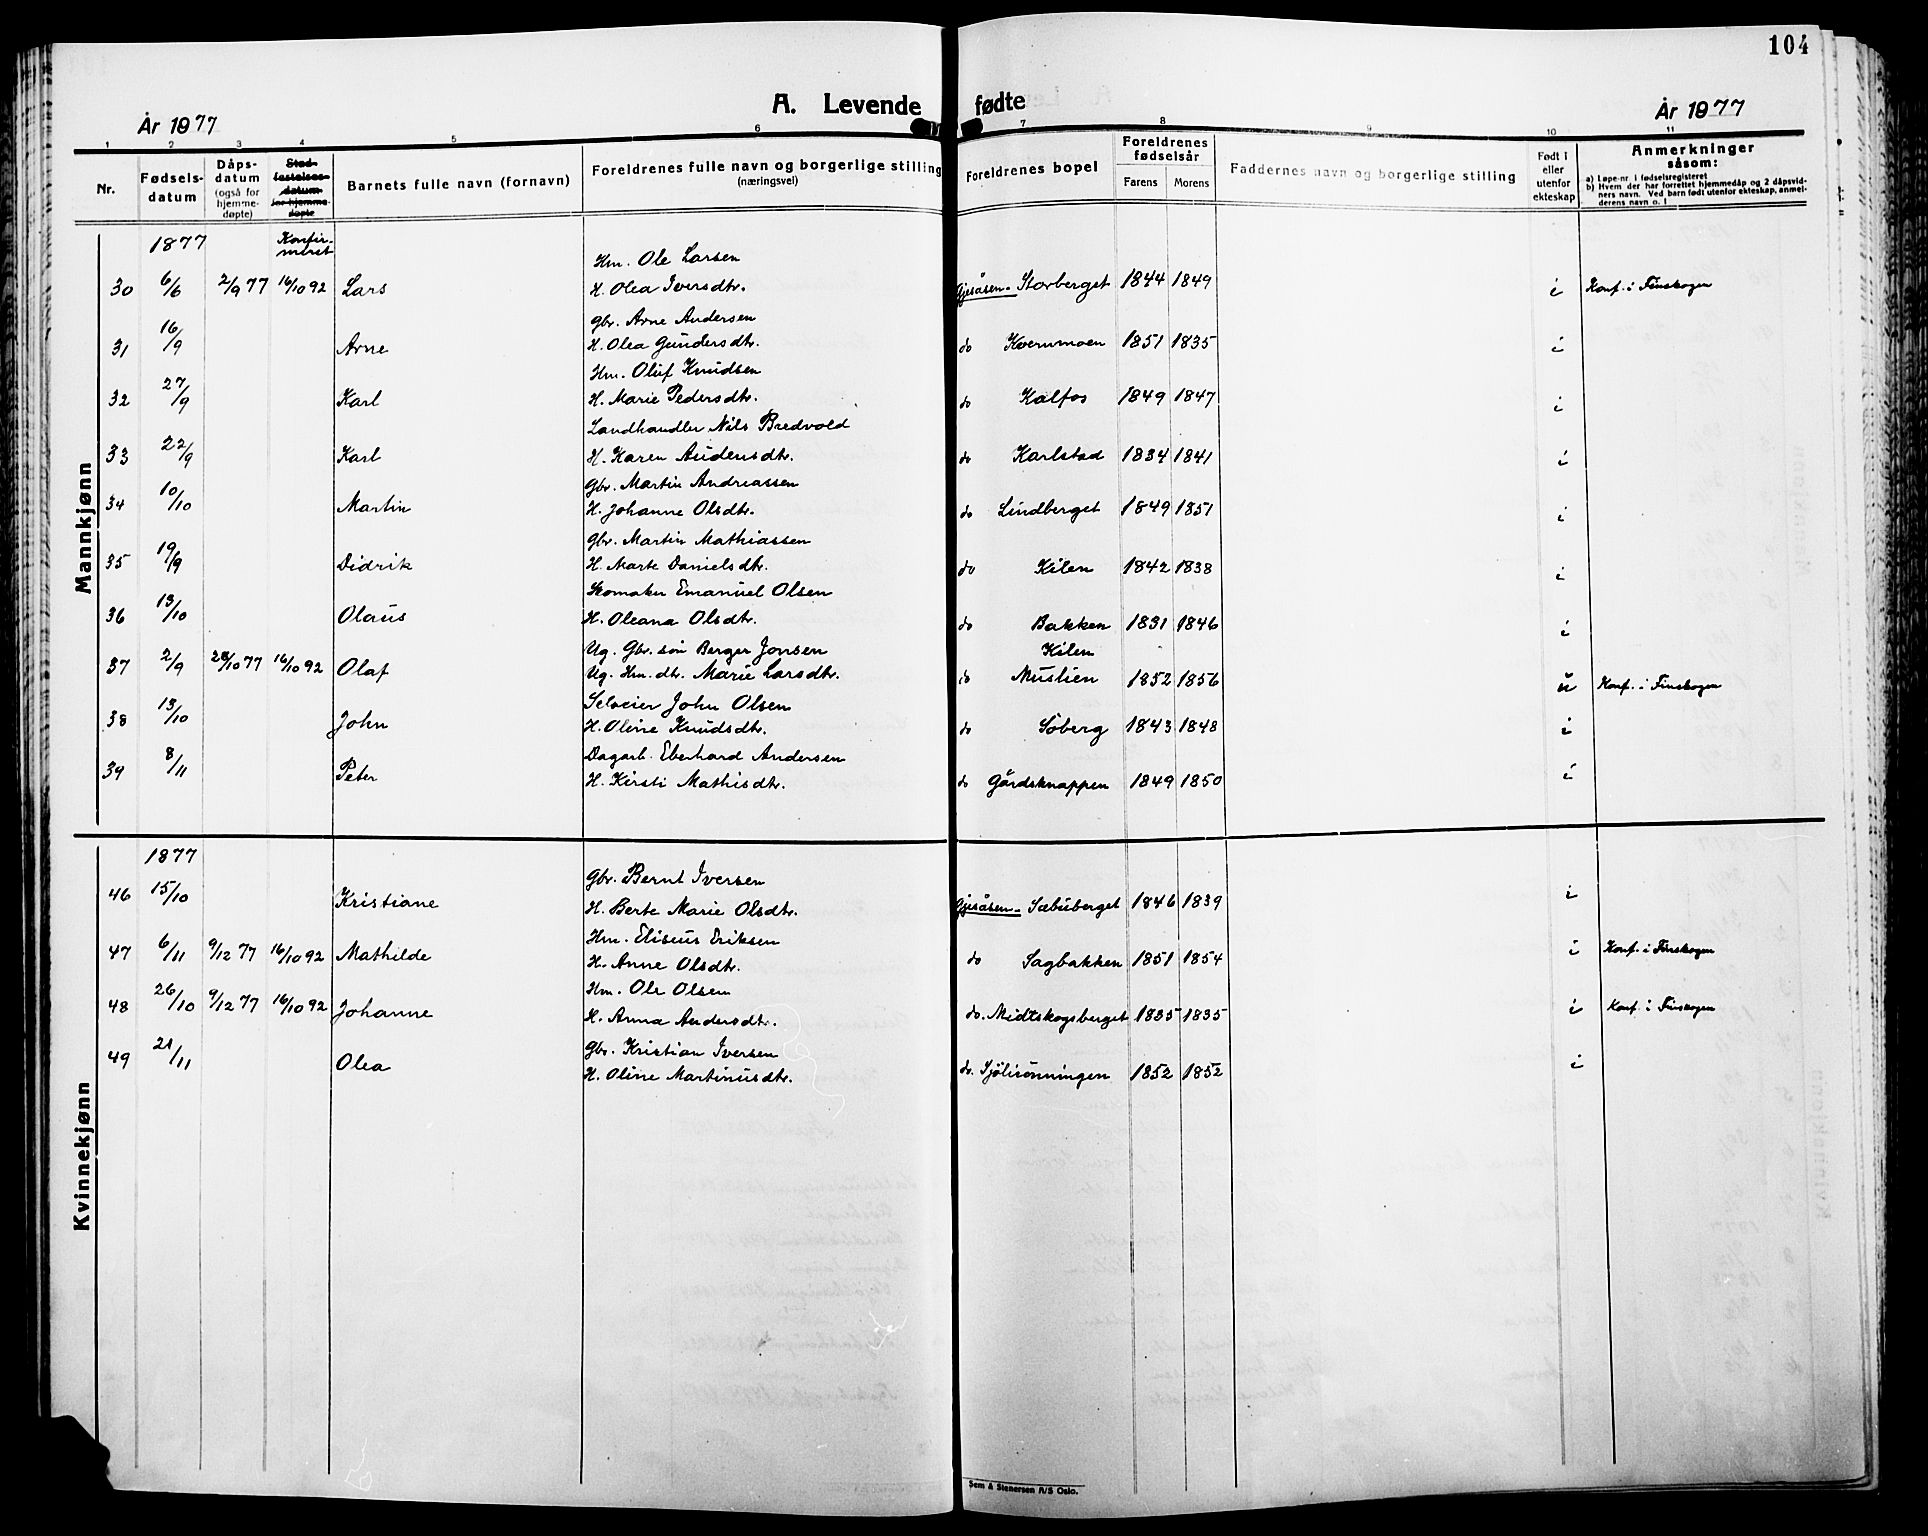 104
A. Levende fødte
År 1977
År 1977
1 2 3 4 5 6 7 8 9 10 11
Nr.
Fødsels-
datum
Dåps-
datum
(også for
hjemme-
døpte)
Stad-
festelses-
datum
for hjemme-
døpte
Barnets fulle navn (fornavn)
Foreldrenes fulle navn og borgerlige stilling
(næringsvei)
Foreldrenes bopel
Foreldrenes
fødselsår
Farens Morens
Faddernes navn og borgerlige stilling
Født i
eller
utenfor
ekteskap
Anmerkninger
såsom:
a) Løpe-nr i fødselsregisteret
b) Hvem der har forrettet hjemmedåp og 2 dåpsvid-
ners navn. Ved barn født utenfor ekteskap, anmel-
derens navn o. l
Mannkjønn
1877 Konfir-
meret
Hm. Ole Larsen
30 6/6 2/9 77 16/10 92 Lars H. Olea Iversdtr. Gjesåsen- Storberget 1844 1849 i Konf. i Finskogen
Gbr. Arne Andersen
31 16/9 Arne H. Olea Gundersdtr. do Kvernmoen 1851 1835 i
Hm. Oluf Knudsen
32 27/9 Karl H. Marie Pedersdtr. do Kalfos 1849 1847 i
Landhandler Nils Bredvold
33 22/9 Karl H. Karen Audensdtr. do Karlstad 1834 1841 i
Gbr. Martin Andreassen
34 10/10 Martin H. Johanne Olsdtr. do Lindberget 1849 1851 i
Gbr. Martin Mathiassen
35 19/9 Didrik H. Marte Danielsdtr. do Kilen 1842 1838 i
Skomaker Emanuel Olsen
36 13/10 Olaus H. Oleana Olsdtr. do Bakken 1831 1846 i
Ug. Gbr. søn Berger Jonsen Kilen
37 2/9 28/10 77 16/10 92 Olaf Ug. Hm. dtr. Marie Larsdtr. do Mustien 1852 1856 u Konf. i Finskogen
Selveier John Olsen
38 13/10 John H. Oline Knudsdtr. do Søberg 1843 1848 i
Dagarb. Eberhard Andersen
39 8/11 Peter H. Kirsti Mathisdtr. do Gårdsknappen 1849 1850 i
Kvinnekjønn
1877
Gbr. Bernt Iversen
46 15/10 Kristiane H. Berte Marie Olsdtr. Gjesåsen- Sæbuberget 1846 1839 i
Hm. Eliseus Eriksen
47 6/11 9/12 77 16/10 92 Mathilde H. Anne Olsdtr. do Sagbakken 1851 1854 i Konf. i Finskogen
Hm. Ole Olsen
48 26/10 9/12 77 16/10 92 Johanne H. Anna Andersdtr. do. Midtskogsberget 1835 1835 i Konf. i Finskogen
Gbr. Kristian Iversen
49 21/11 Olea H. Oline Martinusdtr. do. Sjölisonningen 1852 1852 i
Sem & Stenersen A/S Oslo.